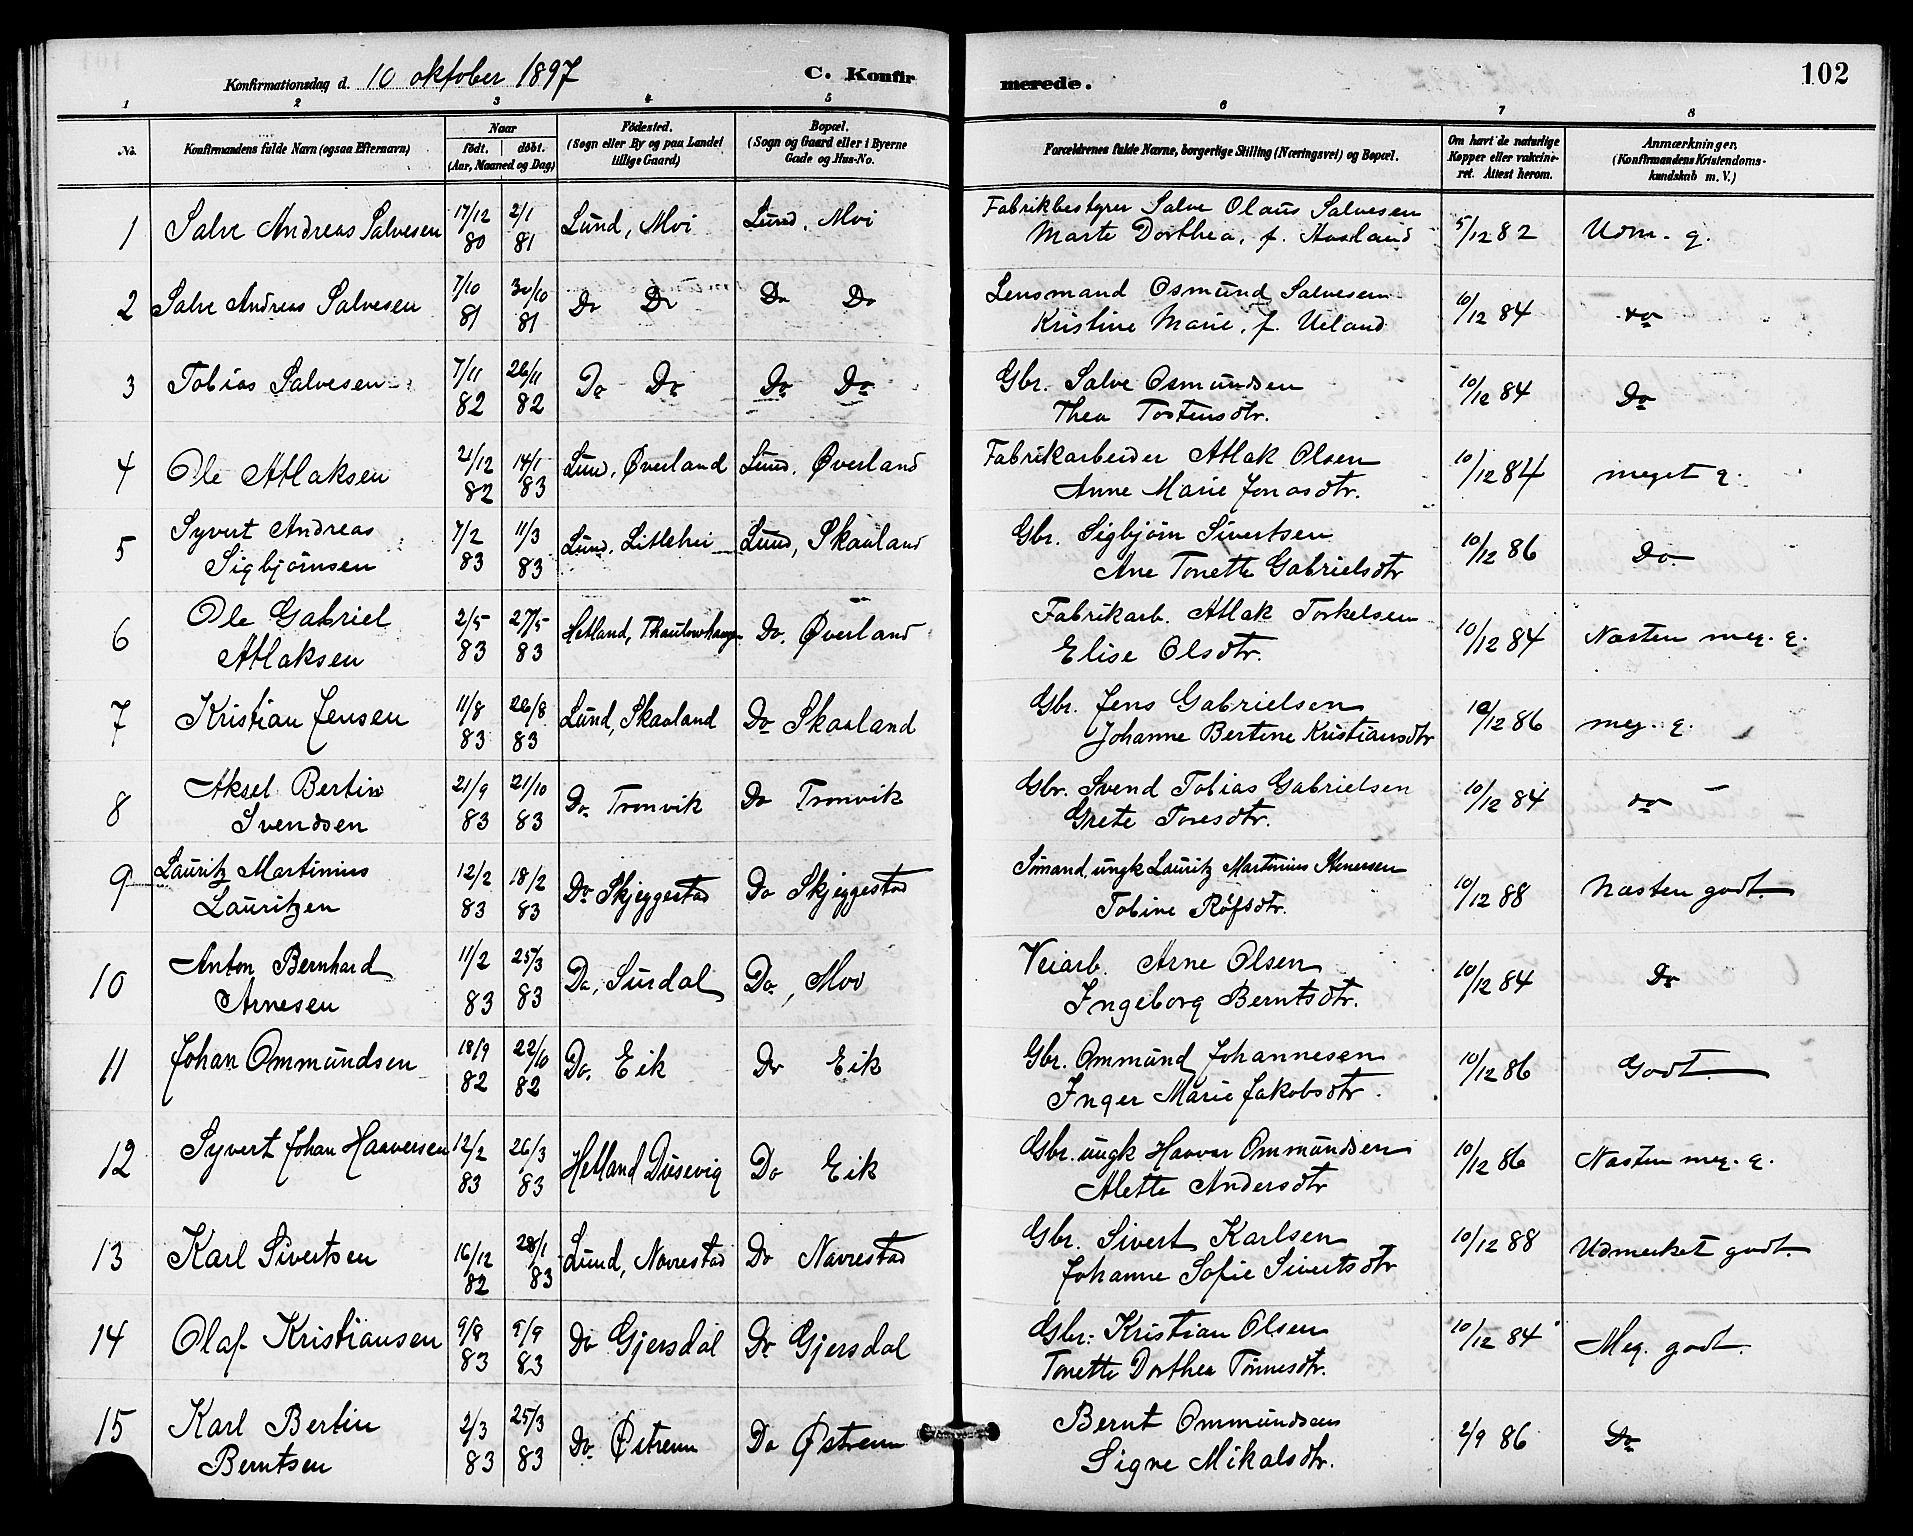 Konfirmationsdag d. 10 oktober 1897 C. Konfirmerede. 102
1 2 3 4 5 6 7 8
No. Konfirmandens fulde Navn (ogsaa Efternavn) Naar født. døbt. (Aar, Maaned og Dag) Fødested. (Sogn eller By og paa Landet tillige Gaard) Bopæl. (Sogn og Gaard eller i Byerne Gade og Hus-No. Forældrenes fulde Navne, borgerlige Stilling (Næringsvei) og Bopæl. Om havt de naturlige Kopper eller vakcineret. Attest herom. Anmærkninger. (Konfirmandens Kristendomskundskab m. V.)
1 Salve Andreas Salvesen 17/12 80 2/1 81 Lund, Moi Lund, Moi Fabrikbestyrer Salve Olaus Salvesen 5/12 82 Udm. g.
Marte Dorthea, f. Aasland
2 Salve Andreas Salvesen 7/10 81 30/10 81 Do Do Do Do Lensmand Osmund Salvesen 10/12 84 do
Kristine Marie, f. Ueland
3 Tobias Salvesen 7/11 82 26/11 82 Do Do Do Do Gbr. Salve Osmundsen 10/12 84 Do
Thea Tostensdtr.
4 Ole Atlaksen 21/12 82 14/1 83 Lund, Øverland Lund, Øverland Fabrikarbeider Atlak Olsen 10/12 84 meget g.
Anne Marie Jonasdtr.
5 Syvert Andreas 7/2 83 11/3 83 Lund, Litlehei Lund, Skaaland Gbr. Sigbjørn Sivertsen 10/12 86 Do.
Sigbjørnsen Ane Tonette Gabrielsdtr
6 Ole Gabriel 2/5 83 27/5 83 Hetland, Thaulowhaugen Do. Øverland Fabrikarb. Atlak Torkelsen 10/12 84 Næsten meg. g.
Atlaksen Elise Olsdtr.
7 Kristian Jensen 11/8 83 26/8 83 Lund, Skaaland Do Skaaland Gbr. Jens Gabrielsen 10/12 86 meg. g.
Johanne Bertine Kristiansdtr
8 Aksel Bertin 21/9 83 21/10 83 Do. Tronvik Do Tronvik Gbr. Svend Tobias Gabrielsen 10/12 84 do
Svendsen Grete Toresdtr.
9 Lauritz Martinius 12/2 83 18/2 83 Do Skjeggestad Do Skjeggestad Sømand, ungk Lauritz Martinius Stenersen 10/12 88 Næsten godt.
Lauritzen Tobine Rølfsdtr.
10 Anton Bernhard 11/2 83 25/3 83 Do, Surdal Do, Moi Veiarb. Arne Olsen 10/12 84 Do
Arnesen Ingeborg Berntsdtr.
11 Johan Ommundsen 18/9 82 22/10 82 Do. Eik Do Eik Gbr. Ommund Johannesen 10/12 86 Godt.
Inger Marie Jakobsdtr.
12 Syvert Johan Haaversen 12/2 83 26/3 83 Hetland Dusevig Do Eik Gbr. ungk Haavar Ommundsen 10/12 86 Næsten meg. g.
Alette Andersdtr
13 Karl Sivertsen 16/12 82 28/1 83 Lund, Navrestad Do Navrestad Gbr. Sivert Karlsen 10/12 88 Udmerket godt.
Johanne Sofie Sivertsdtr
14 Olaf Kristiansen 9/8 83 9/9 83 Do Gjersdal Do Gjersdal Gbr. Kristian Olsen 10/12 84 Meg. godt.
Tonette Dorthea Tønnesdtr.
15 Karl Bertin 2/3 83 25/3 83 Do Østrem Do Østrem Bernt Ommundsen 2/9 86 Do
Berntsen Signe Mikalsdtr.